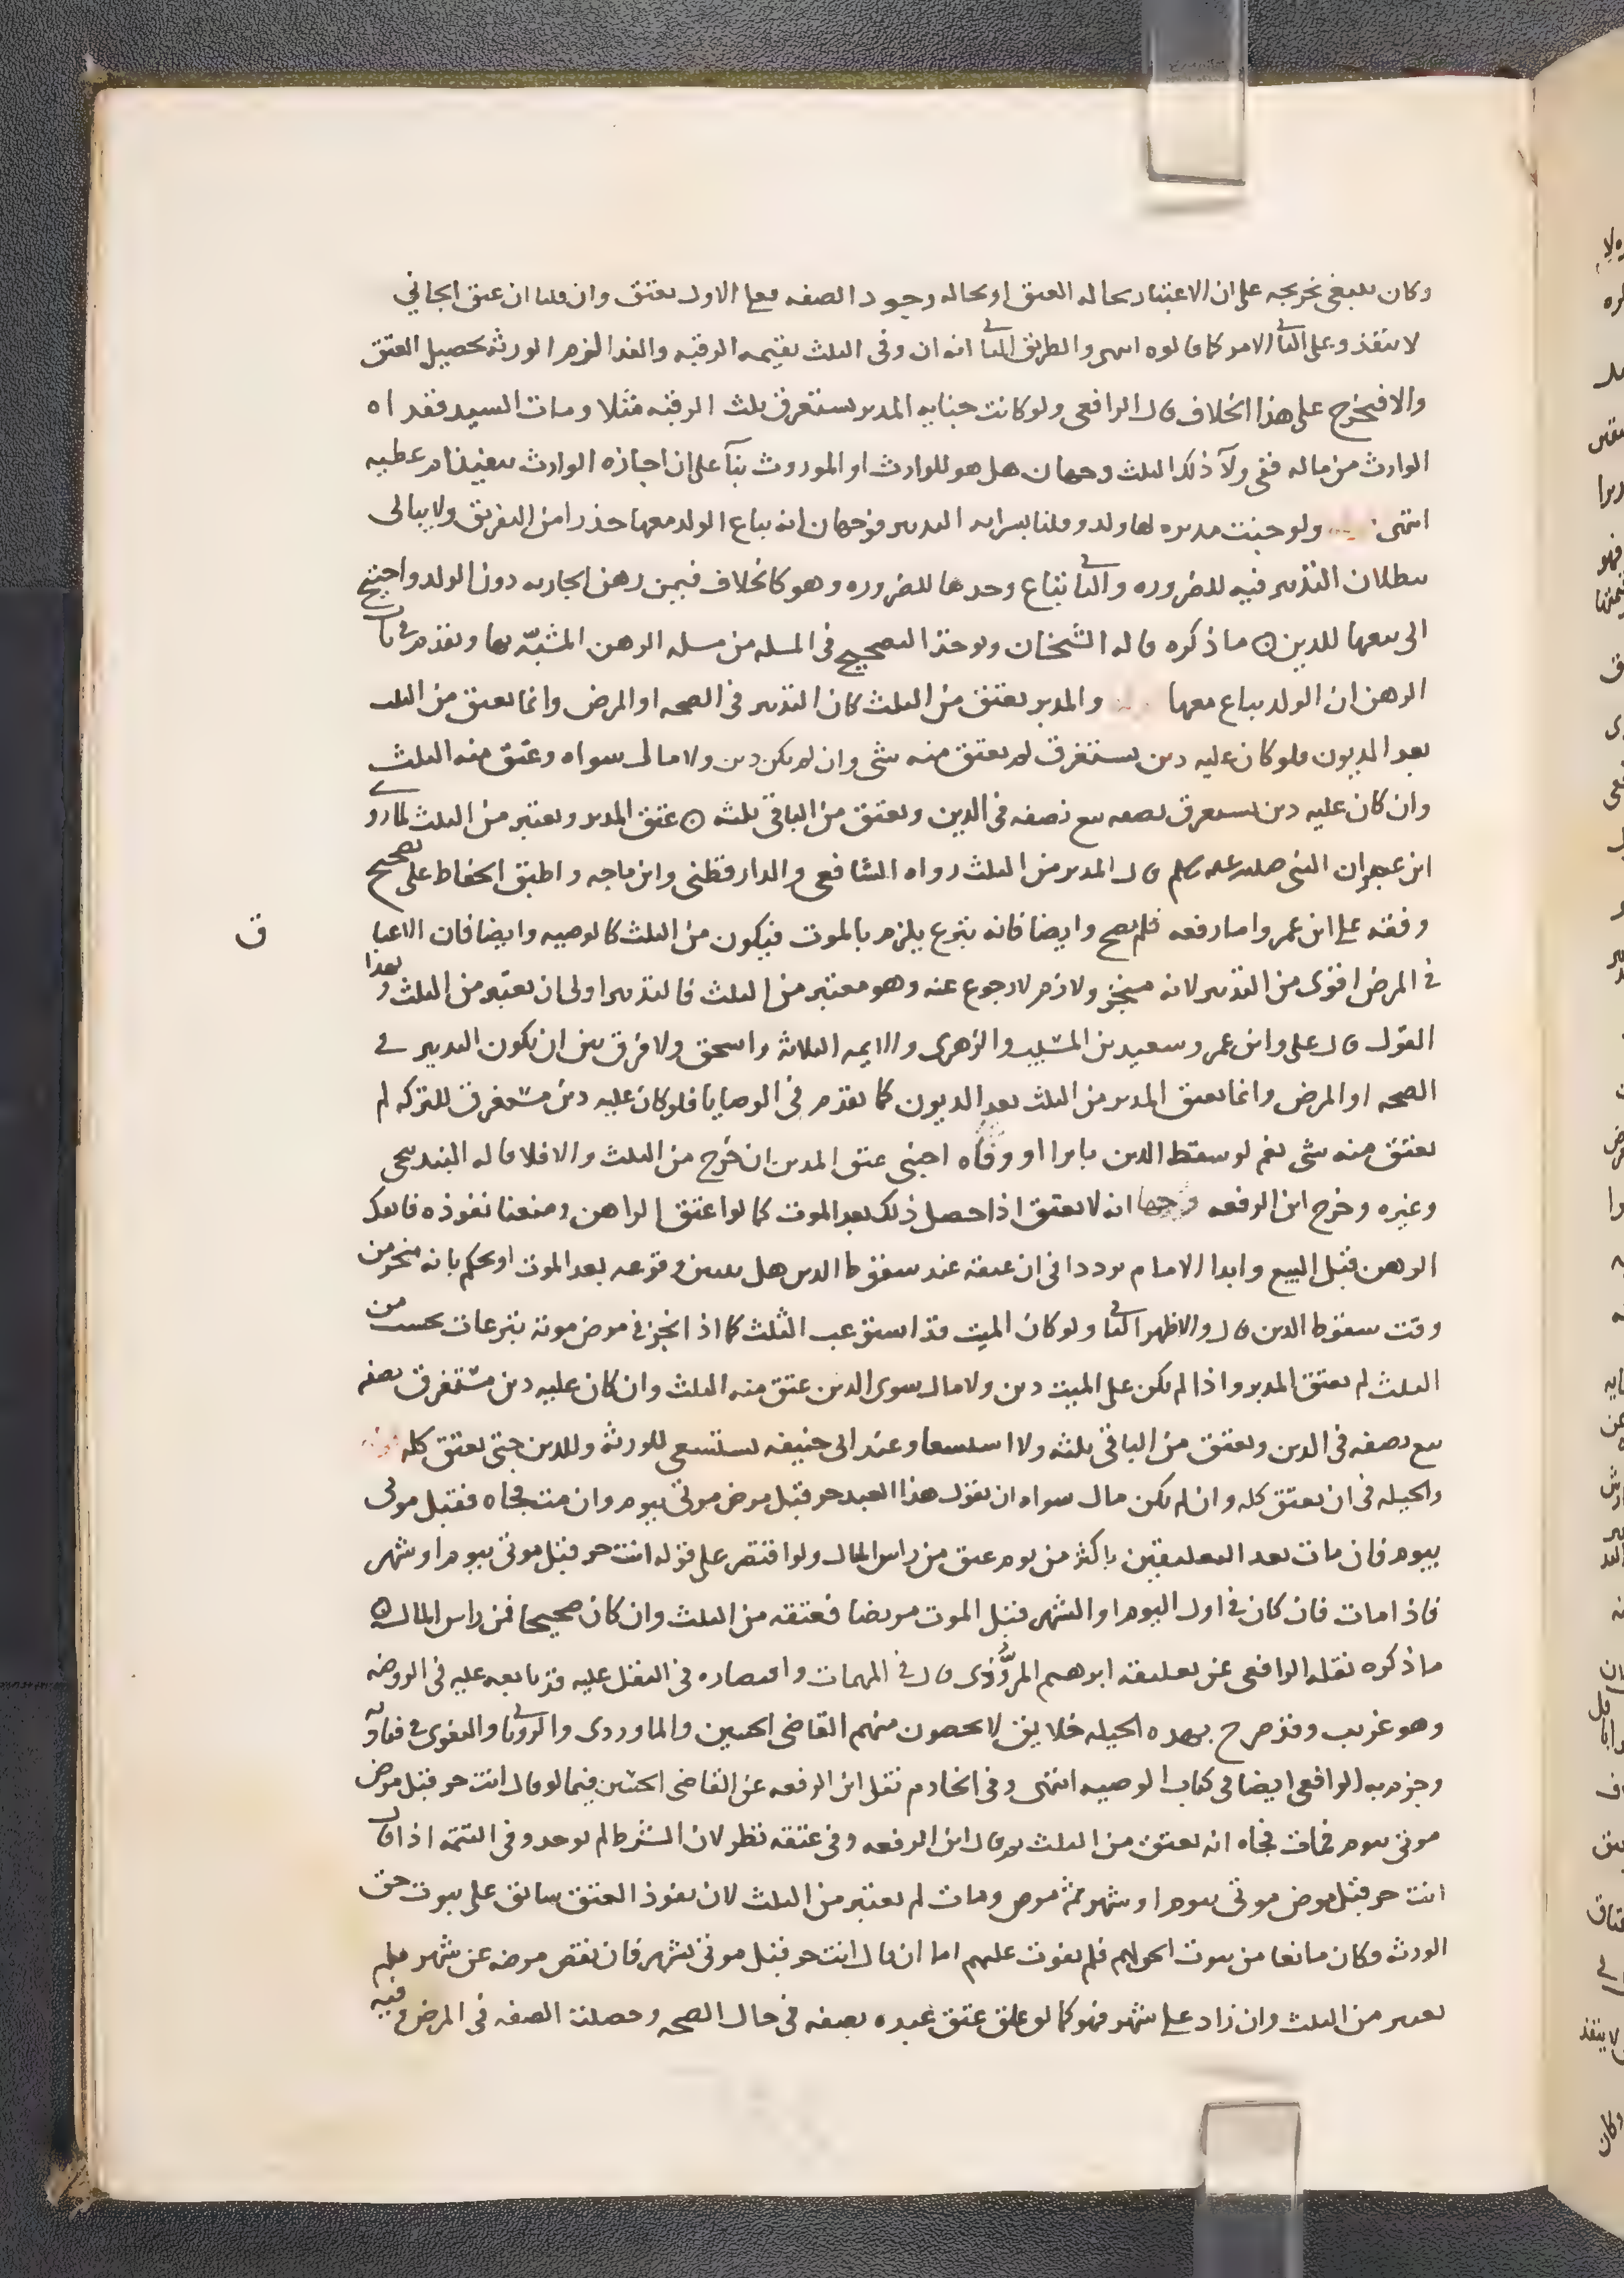 وكان ينبغي تخريجه على ان الاعتبار بحاله العتق او بحاله وجود الصفه فعلى الاول يعتق وان قلنا ان عتق الجاني
لا ينفذ وعلى الثاني الامر كما قالوه انتهى والطريق الثاني انه ان وفى الثلث بقيمه الرقبه والفدا لزم الورثه تحصيل العتق
والا فيخرج على هذا الخلاف قال الرافعي ولو كانت جنايه المدبر تستغرق ثلث الرقبه مثلا ومات السيد ففداه
الوارث من ماله ففي ولآ ذلك الثلث وجهان هل هو للوارث او الموروث بنآ على ان اجازه الوارث تنفيذ ام عطيه
انتهى ولو جنت مدبره لها ولد وقلنا بسرايه التدبير فوجهان انه يباع الولد معها حذرا من التفريق ولا يبالى
ببطلان التدبير فيه للضروره والثاني تباع وحدها للضروره وهو كالخلاف فيمن رهن الجاريه دون الولد واحتيج
الى بيعها للدين ما ذكره قاله الشيخان ويوخذ التصحيح في المسله من مسله الرهن المشبّه بها وتقدم في باب
الرهن ان الولد يباع معها والمدبر يعتق من الثلث كان التدبير في الصحه او المرض وانما يعتق من الثلث
بعد الديون فلو كان عليه دين يستغرق لم يعتق منه شي وان لم يكن دين ولا مال سواه وعتق منه الثلث
وان كان عليه دين يستغرق نصفه بيع نصفه في الدين ويعتق من الباقي ثلثه عتق المدبر ويعتبر من الثلث لما روى
ابن عمر ان النبي صلى الله عليه وسلم قال المدبر من الثلث رواه الشافعي والدارقطني وابن ماجه واطبق الحفاظ على تصحيح
وقفه على ابن عمر واما رفعه فلم يصح وايضا فانه تبرع يلزم بالموت فيكون من الثلث كالوصيه وايضا فان الاعتا
ق
في المرض اقوى من التدبير لانه منجز ولازم لا رجوع عنه وهو معتبر من الثلث فالتدبير اولى ان يعتبر من الثلث وبهذا
القول قال علي وابن عمر وسعيد بن المسيب والزهري والايمه الثلاثه واسحق ولا فرق بين ان يكون التدبير في
الصحه او المرض وانما يعتق المدبر من الثلث بعد الديون كما تقدم في الوصايا فلو كان عليه دين مستغرق للتركه لم
يعتق منه شي نعم لو سقط الدين بابرا او وفاه اجنبي عتق المدبر ان خرج من الثلث والا فلا قاله البندنيجي
وغيره وخرج ابن الرفعه وجها انه لا يعتق اذا حصل ذلك بعد الموت كما لو اعتق الراهن ومنعنا نفوذه فانفك
الرهن قبل البيع وابدا الامام ترددا في ان عتقه عند سقوط الدين هل يتبين وقوعه بعد الموت او يحكم بانه منجز من
وقت سقوط الدين قال والاظهر الثاني ولو كان الميت قد استوعب الثلث كما اذا نجز في مرض موته تبرعات تحسب من
الثلث لم يعتق المدبر واذا لم يكن على الميت دين ولا مال سوى الدين عتق منه الثلث وان كان عليه دين مستغرق نصفه
بيع نصفه في الدين ويعتق من الباقي ثلثه ولا استسعا وعند ابي حنيفه يستسعي للورثه وللدين حتى يعتق كله
والحيله في ان يعتق كله وان لم يكن مال سواه ان يقول هذا العبد حر قبل مرض موتي بيوم وان مت فجاه فقبل موتى
بيوم فان مات بعد التعليقين باكثر من يوم عتق من راس المال ولو اقتصر على قوله انت حر قبل موتي بيوم او شهر
فاذا مات فان كان في اول اليوم او الشهر قبل الموت مريضا فعتقه من الثلث وان كان صحيحا فمن راس المال
ما ذكره نقله الرافعي عن تعليقه ابرهيم المروُّذي قال في المهمات واقتصاره في النقل عليه قد تابعه عليه في الروضه
وهو غريب وقد صرح بهذه الحيله خلايق لا يحصون منهم القاضي الحسين والماوردي والروياني والبغوي في فتاويه
وجزم به الرافعي ايضا في كتاب الوصيه انتهى وفي الخادم نقل ابن الرفعه عن القاضي الحسين فيما لو قال انت حر قبل مرض
موتي بيوم فمات فجاه انه يعتق من الثلث ثم قال ابن الرفعه وفي عتقه نظر لان الشرط لم يوجد وفي التتمه اذا قال
انت حر قبل مرض موتي بيوم او شهر ثم مرض ومات لم يعتبر من الثلث لان نفوذ العتق سابق على ثبوت حق
الورثه وكان مانعا من ثبوت فلم يفوت عليهم اما ان قال انت حر قبل موتي بشهر فان نقص مرضه عن شهر فلم
يعتبر من الثلث وان زاد على شهر فهو كما لو علق عتق عبده بصفه في حال الصحه وحصلت الصفه في المرض وفيه